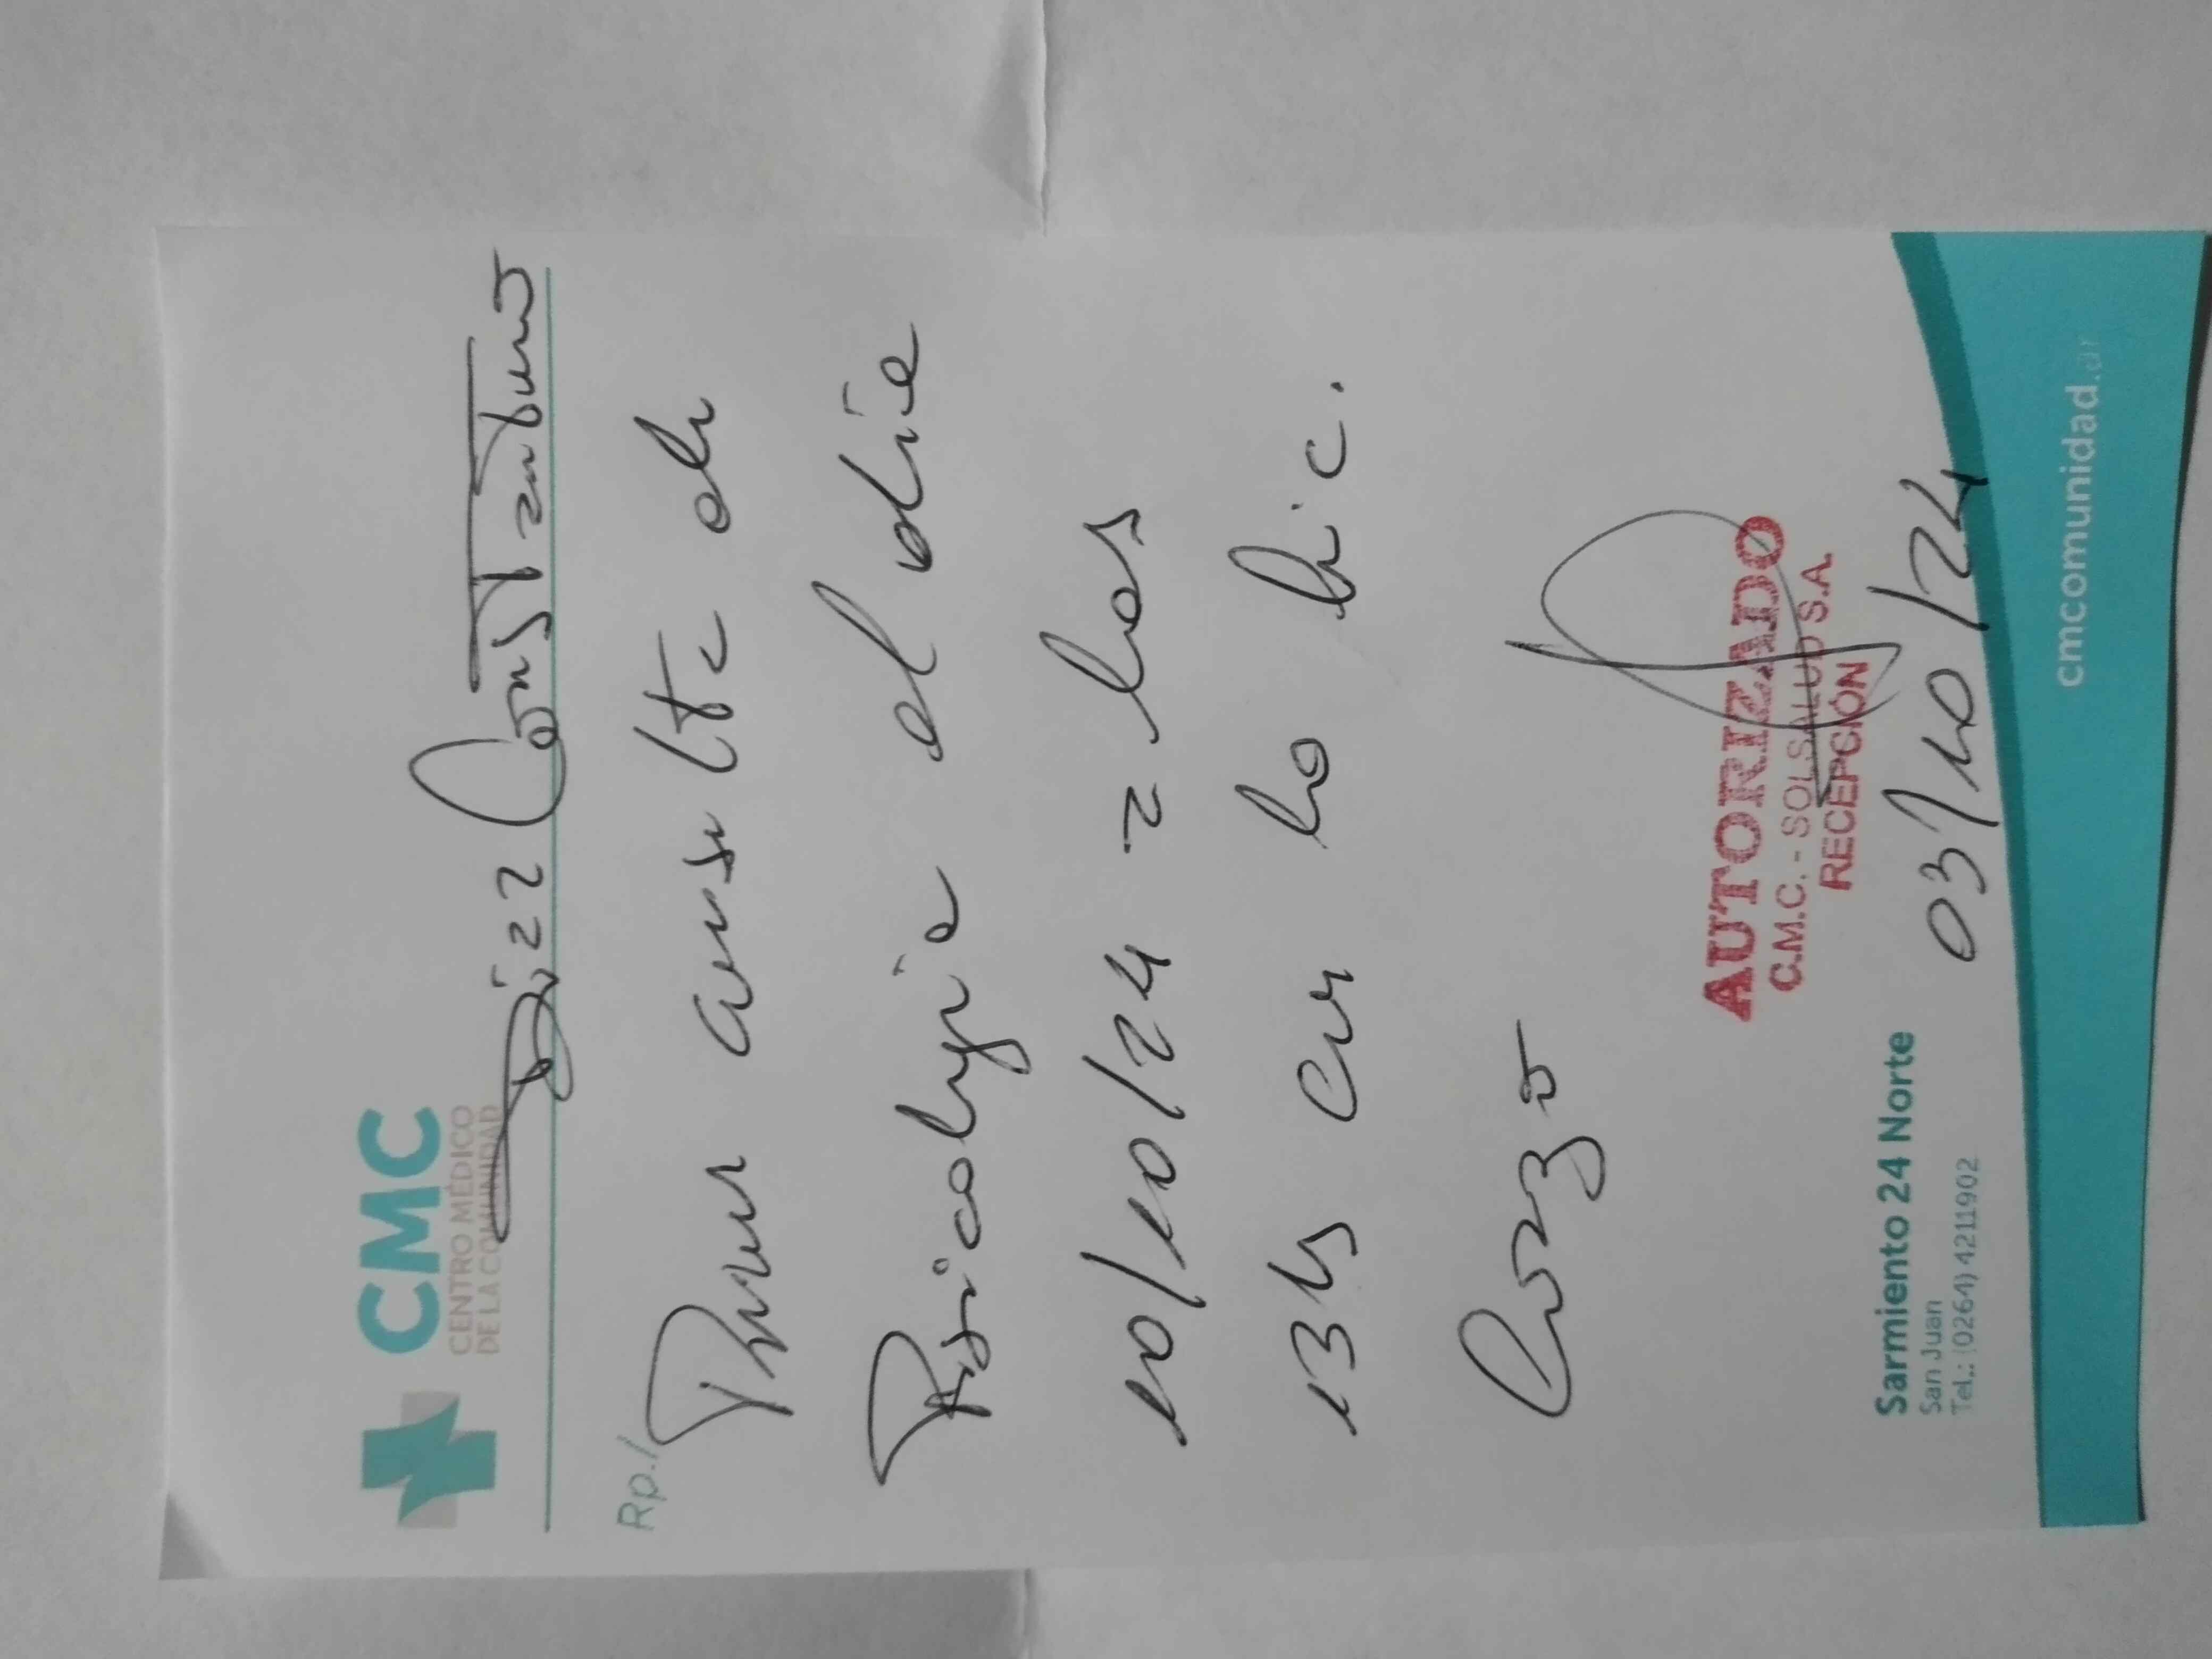 CMC
CENTRO MÉDICO
DE LA COMUNIDAD
Diaz Constantino
Rp./
Tiene consulta de
Psicología el día
10/10/24 a las
13 hs con la Lic.
AUTORIZADO
C.M.C. - SOLSALUD S.A.
RECEPCIÓN
03/10/24
Sarmiento 24 Norte
San Juan
Tel.: (0264) 4211902
cmcomunidad.ar